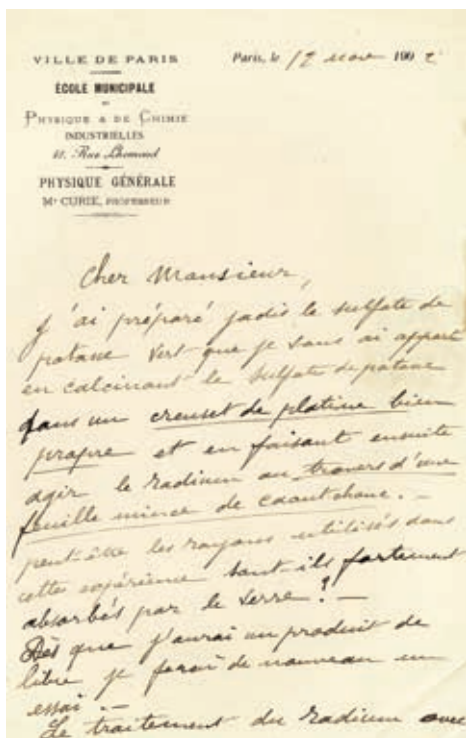 VILLE DE PARIS
ÉCOLE MUNICIPALE
DE
PHYSIQUE & DE CHIMIE
INDUSTRIELLES
42, Rue Lhomond
PHYSIQUE GÉNÉRALE
Mr CURIE, PROFESSEUR
Paris, le 12 190
Cher Monsieur,
J'ai préparé jadis le sulfate de
potasse vert que je vous ai apporté
en calcinant le sulfate de potasse
dans un creuset de platine bien
propre et en faisant ensuite
agir le radium au travers d'une
feuille mince de caoutchouc. —
peut-être les rayons utilisés dans
cette expérience sont-ils fortement
absorbés par le verre? —
Dès que j'aurai un produit de
libre je ferai de nouveau un
essai. —
Le traitement du radium avec